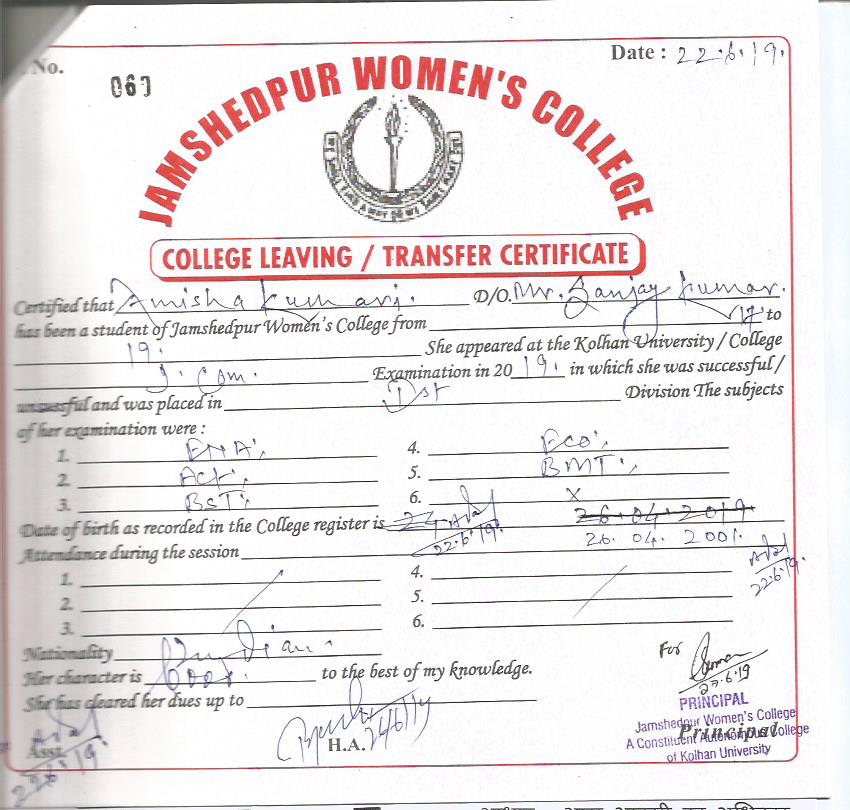 No.
060
Date : 22.6.19.
JAMSHEDPUR WOMEN'S COLLEGE
COLLEGE LEAVING / TRANSFER CERTIFICATE
Certified that Amisha Kumari. D/O. Mr. Sanjay Kumar.
has been a student of Jamshedpur Women's College from 17 to
19. She appeared at the Kolhan University / College
I. Com. Examination in 2019. in which she was successful /
unsussful and was placed in Ist Division The subjects
of her examination were :
1. ENA, 4. Eco,
2. ACT, 5. BMT,
3. BST, 6. X
Date of birth as recorded in the College register is 24 26.04.2019
22.6.19. 26.04.2001.
Attendance during the session
22.6.19.
1. 4.
2. 5.
3. 6.
Nationality Indian.
Her character is Good. to the best of my knowledge.
She has cleared her dues up to
For
27.6.19
PRINCIPAL
Jamshedpur Women's College
A Constituent Autonomous College
of Kolhan University
Principal
24/6/19
H.A.
Asst.
22.6.19.